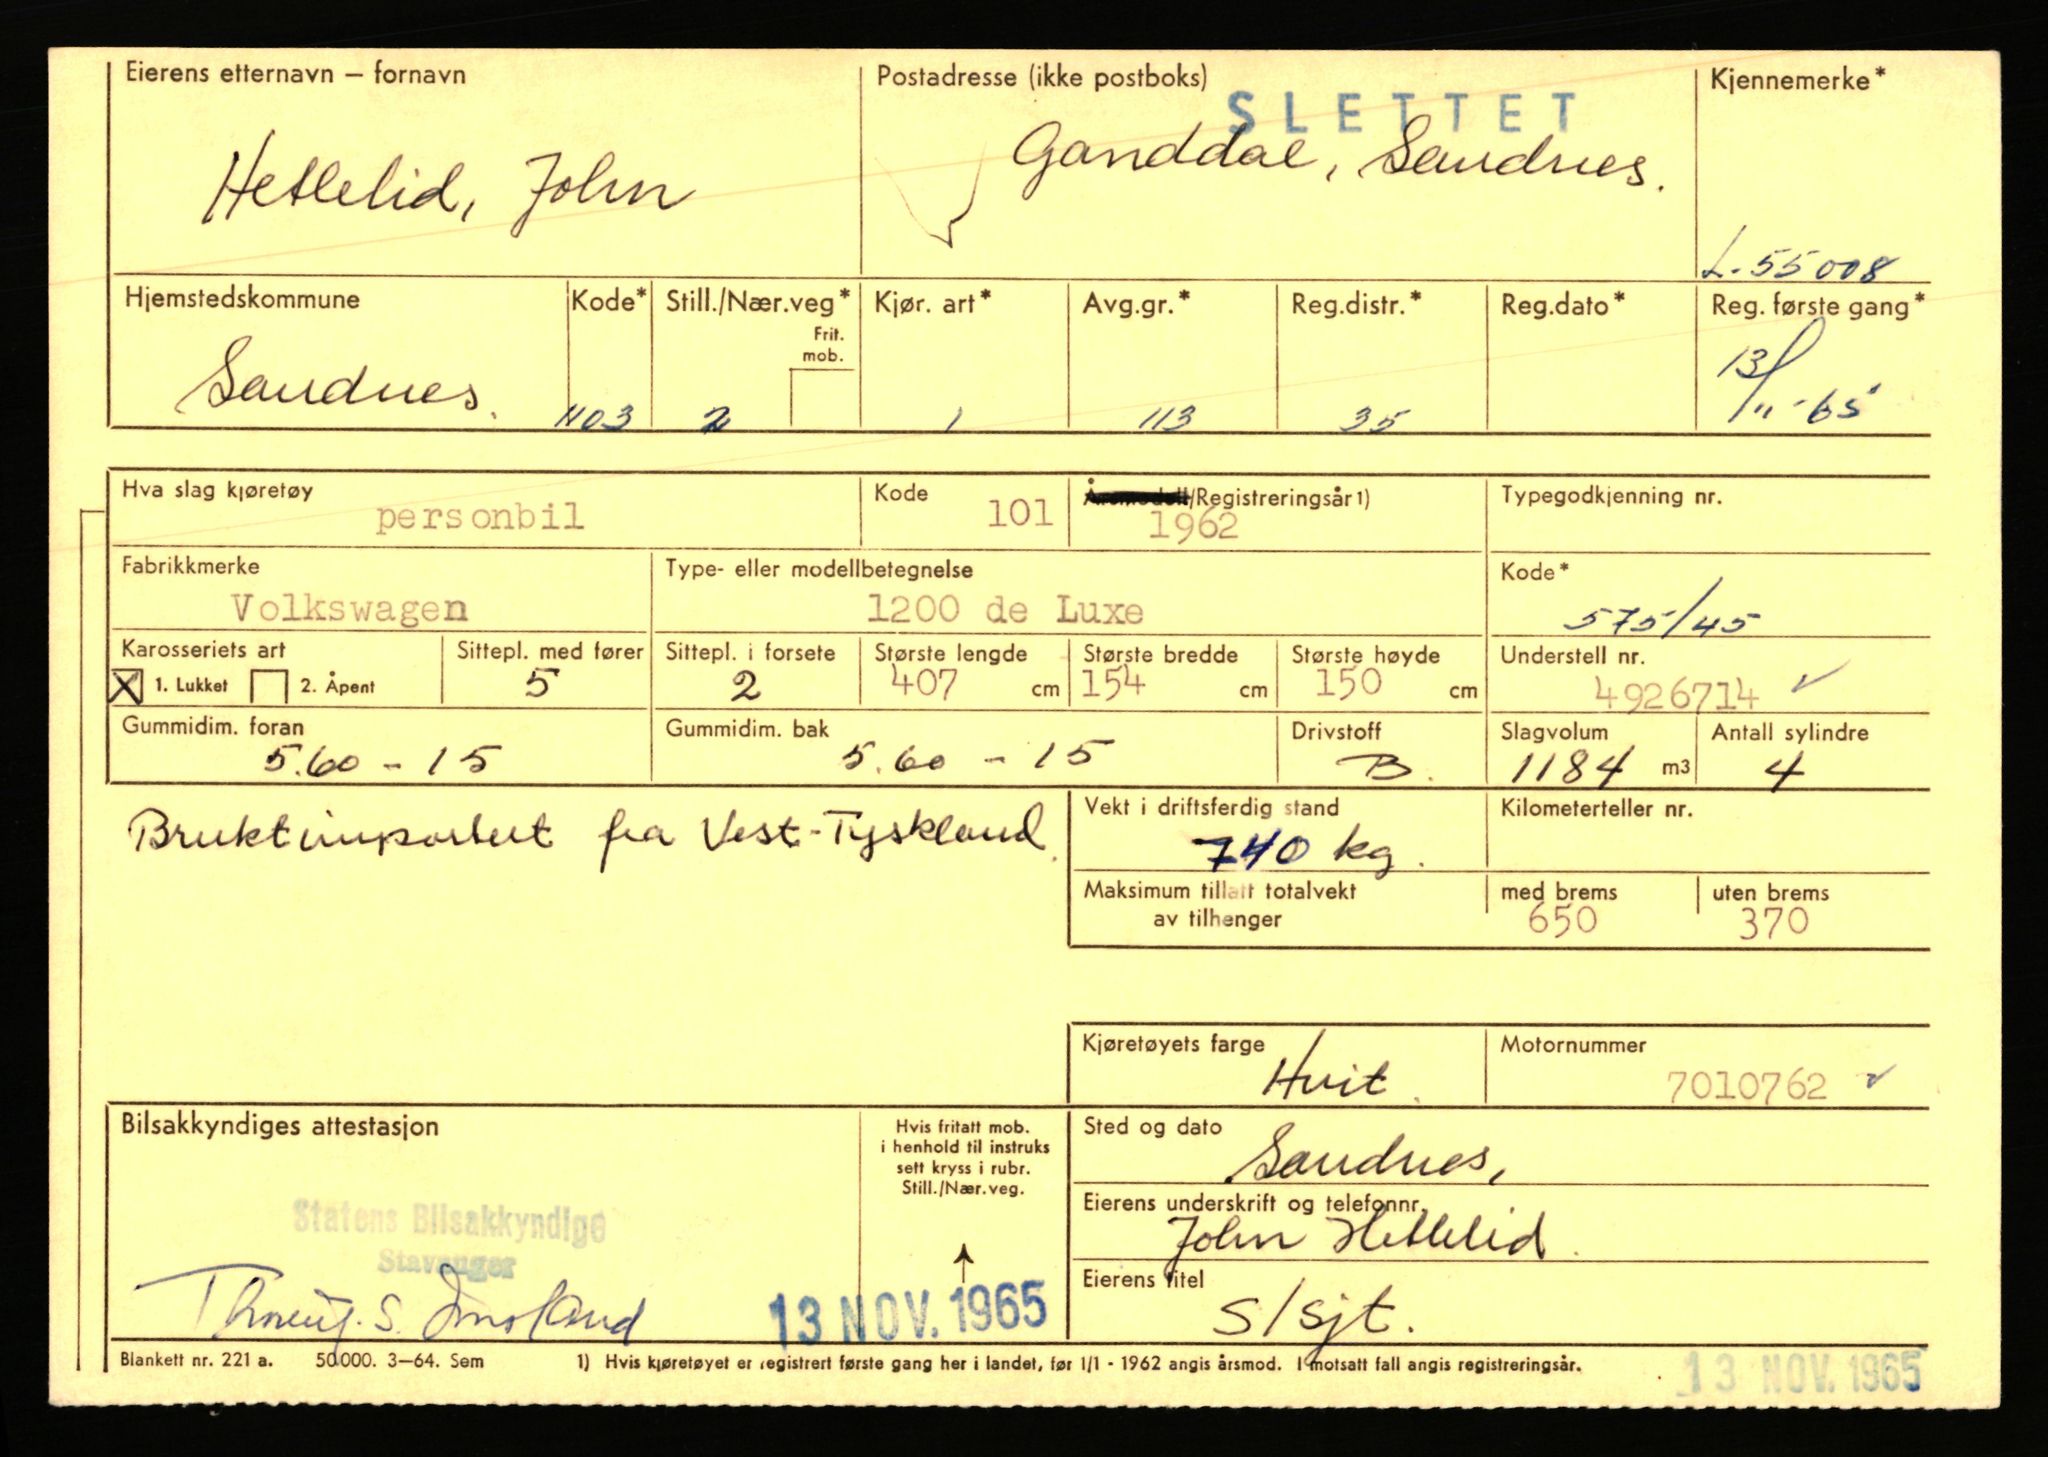 Eierens etternavn – fornavn
Hetlelid, John
Postadresse (ikke postboks)
SLETTET
Ganddal, Sandnes.
Kjennemerke*
L-55008
Hjemstedskommune
Sandnes.
Kode*
1103
Still./Nær.veg*
Frit. mob.
2
Kjør. art*
1
Avg.gr.*
113
Reg.distr.*
35
Reg.dato*
Reg. første gang*
13/11-65
Hva slag kjøretøy
personbil
Kode
101
Årsmodell/Registreringsår 1)
1962
Typegodkjenning nr.
Fabrikkmerke
Volkswagen
Type- eller modellbetegnelse
1200 de Luxe
Kode*
575/45
Karosseriets art
X 1. Lukket 2. Åpent
Sittepl. med fører
5
Sittepl. i forsete
2
Største lengde
407 cm
Største bredde
154 cm
Største høyde
150 cm
Understell nr.
4926714
Gummidim. foran
5.60 - 15
Gummidim. bak
5.60 - 15
Drivstoff
B.
Slagvolum
1184 m3
Antall sylindre
4
Bruktimportert fra Vest-Tyskland.
Vekt i driftsferdig stand
740 kg.
Kilometerteller nr.
Maksimum tillatt totalvekt
av tilhenger
med brems
650
uten brems
370
Kjøretøyets farge
Hvit.
Motornummer
7010762
Bilsakkyndiges attestasjon
Statens Bilsakkyndige
Stavanger
Hvis fritatt mob.
i henhold til instruks
sett kryss i rubr.
Still./Nær.veg.
13 NOV. 1965
Sted og dato
Sandnes,
Eierens underskrift og telefonnr.
John Hetlelid.
Eierens titel
S/sjt.
Blankett nr. 221 a. 50000. 3–64. Sem
1) Hvis kjøretøyet er registrert første gang her i landet, før 1/1 - 1962 angis årsmod. I motsatt fall angis registreringsår.
13 NOV. 1965